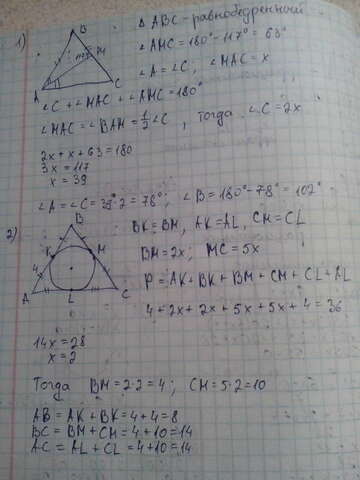 1)
B
M
A
C
117°
Δ ABC - равнобедренный
∠AMC = 180° - 117° = 63°
∠A = ∠C, ∠MAC = x
∠C + ∠MAC + ∠AMC = 180°
∠MAC = ∠BAM = 1/2 ∠C, тогда ∠C = 2x
2x + x + 63 = 180
3x = 117
x = 39
∠A = ∠C = 39°·2 = 78°; ∠B = 180° - 78° = 102°
2)
B
K
M
4
A
L
C
BK = BM, AK = AL, CM = CL
BM = 2x; MC = 5x
P = AK + BK + BM + CM + CL + AL
4 + 2x + 2x + 5x + 5x + 4 = 36
14x = 28
x = 2
Тогда BM = 2·2 = 4; CM = 5·2 = 10
AB = AK + BK = 4 + 4 = 8
BC = BM + CM = 4 + 10 = 14
AC = AL + CL = 4 + 10 = 14